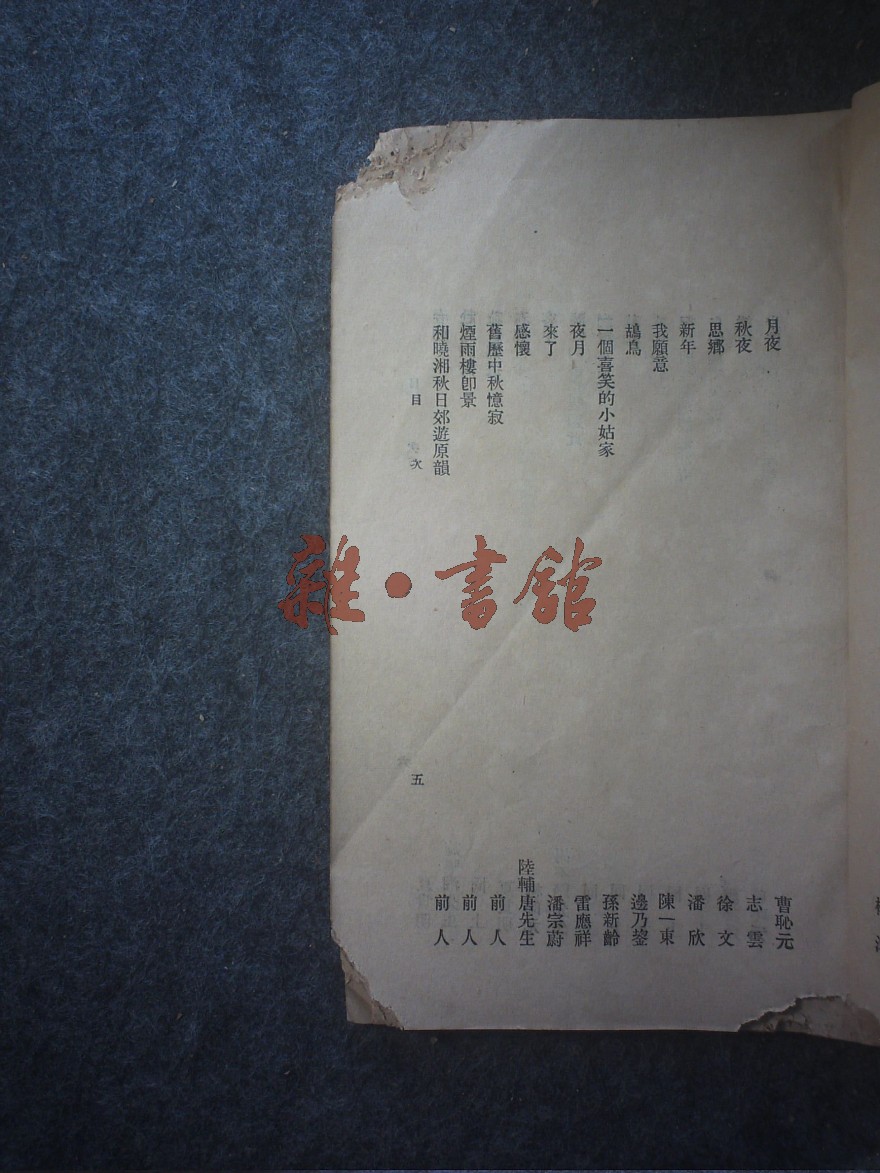 月夜 曹恥元
秋夜 志雲
思鄉 徐文
新年 潘欣
我願意 陳一東
鴣鳥 邊乃鋆
一個喜笑的小姑家 孫新齡
夜月 雷應祥
來了 潘宗蔚
感懷 陸輔唐先生
舊歷中秋憶寂 前人
煙雨樓卽景 前人
和曉湘秋日郊遊原韻 前人
目次 五
雜·書館